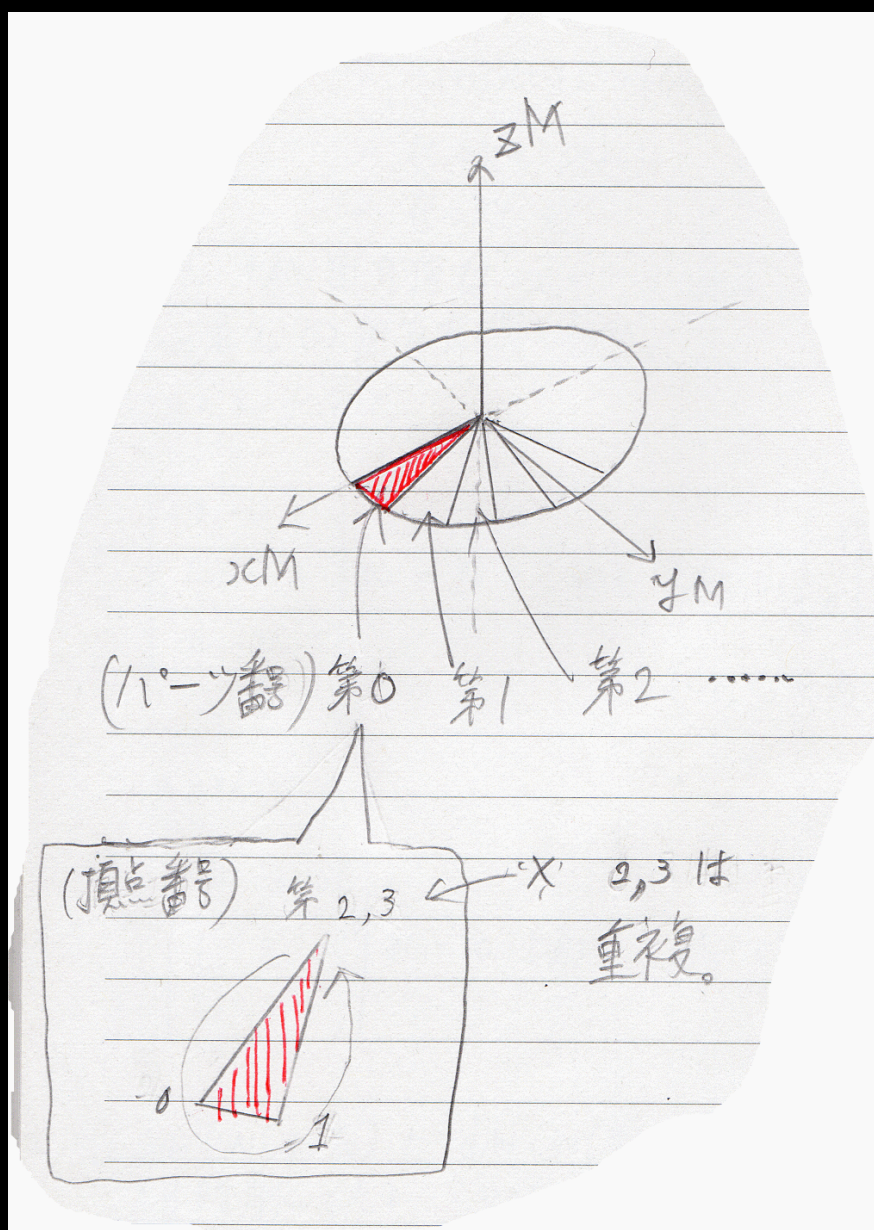 zM
xM
yM
(パーツ番号) 第0 第1 第2 ……
(頂点番号) 第2,3 ※ 2,3は
重複。
0
1